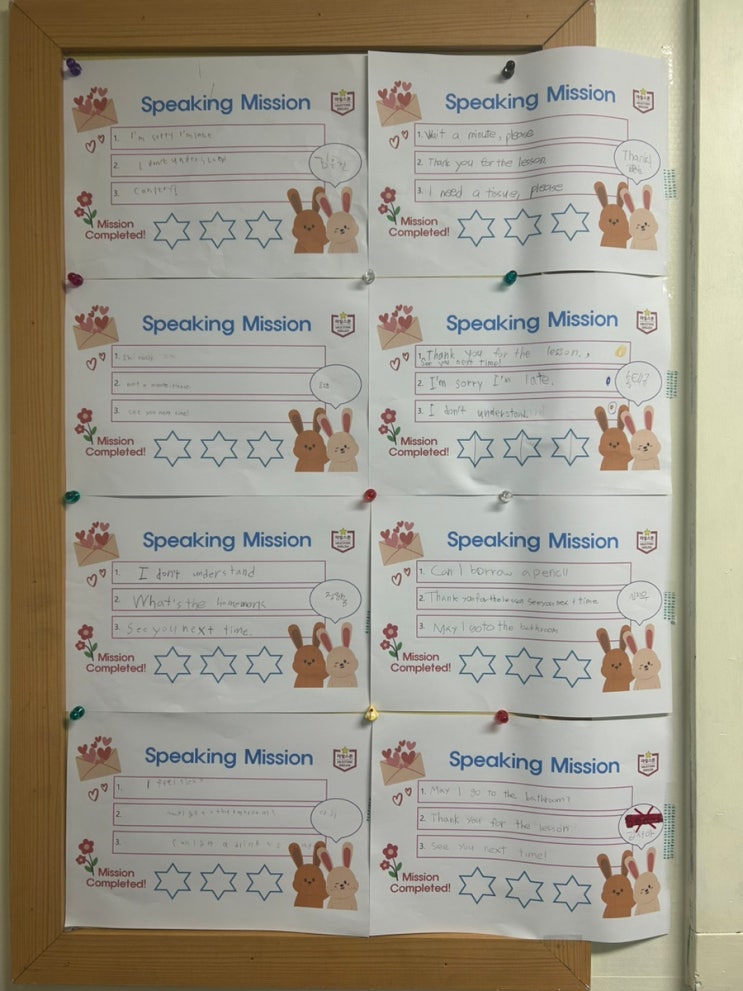 Speaking Mission
1. I'm sorry I'm late
2. I don't understand
3.
Mission
Completed!
Speaking Mission
1. Wait a minute, please
2. Thank you for the lesson.
3. I need a tissue, please
Thank!
Mission
Completed!
Speaking Mission
1.
2. Wait a minute please
3. See you next time!
Mission
Completed!
Speaking Mission
1. Thank you for the lesson.,
See you next time!
2. I'm sorry I'm late.
3. I don't understand.
Mission
Completed!
Speaking Mission
1. I don't understand
2. What's the
3. See you next time.
Mission
Completed!
Speaking Mission
1. Can I borrow a pencil
2. Thank you for the lesson. see you next time.
3. May I go to the bathroom
Mission
Completed!
Speaking Mission
1. I
2.
3. Can I get a drink
Mission
Completed!
Speaking Mission
1. May I go to the bathroom?
2. Thank you for the lesson.
3. See you next time!
Mission
Completed!